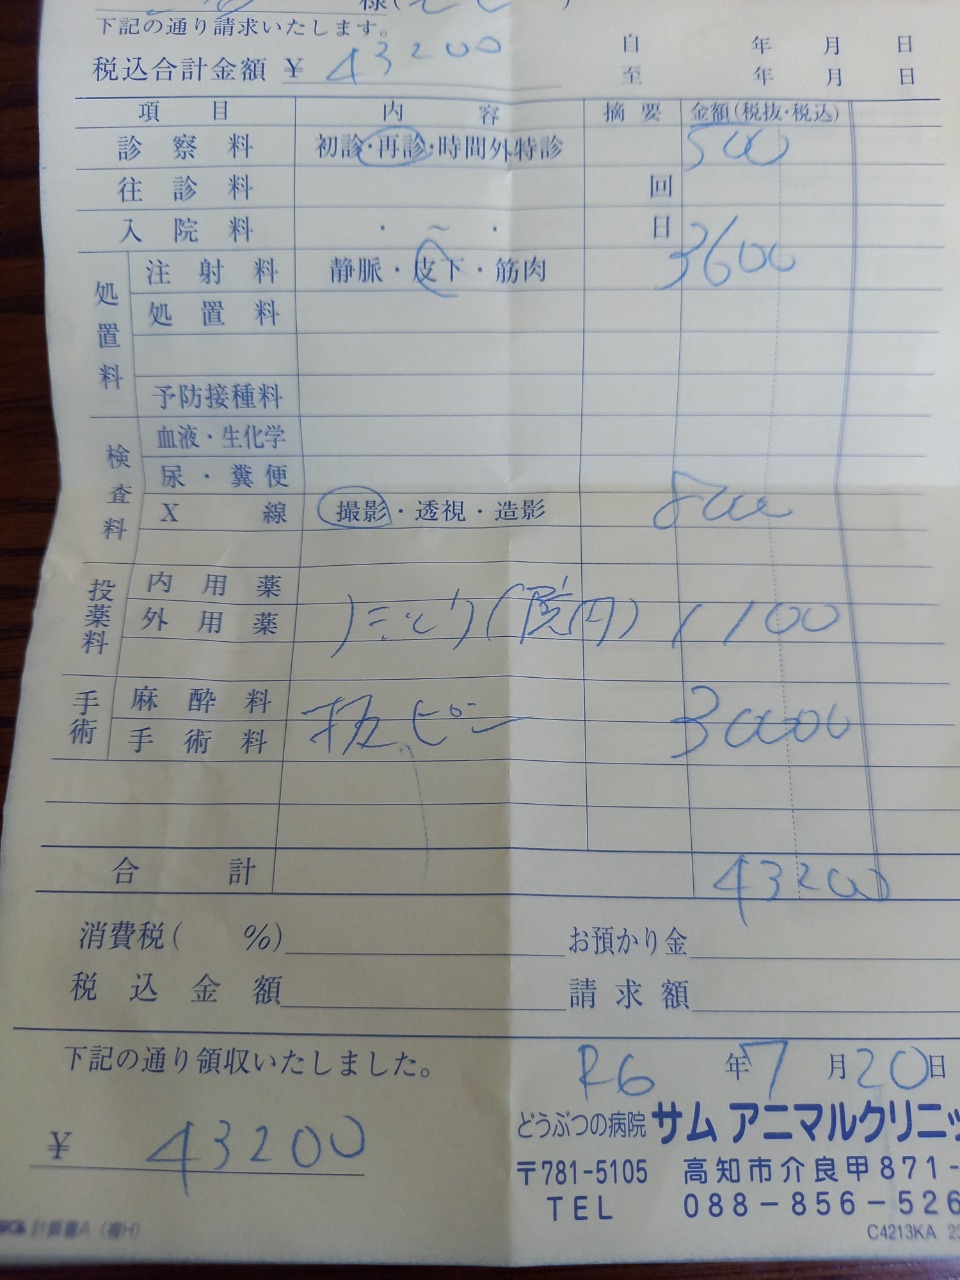 様(
下記の通り請求いたします。
税込合計金額 ¥ 43200
自 年 月 日
至 年 月 日
項 目 内 容 摘 要 金額(税抜・税込)
診 察 料 初診・再診・時間外特診 500
往 診 料 回
入 院 料 ・ ～ ・ 日
処置料
注 射 料 静脈・皮下・筋肉 3600
処 置 料
予防接種料
検査料
血液・生化学
尿・糞便
X 線 撮影・透視・造影 8000
投薬料
内 用 薬
外 用 薬 ノミとり(院内) 1100
手術
麻 酔 料
手 術 料 抜ピン 30000
合 計 43200
消費税( %) お預かり金
税 込 金 額 請 求 額
下記の通り領収いたしました。
R6 年 7 月 20 日
¥ 43200
どうぶつの病院 サム アニマルクリニッ
〒781-5105 高知市介良甲871-
TEL 088-856-526
計算書A (複H)
C4213KA 23